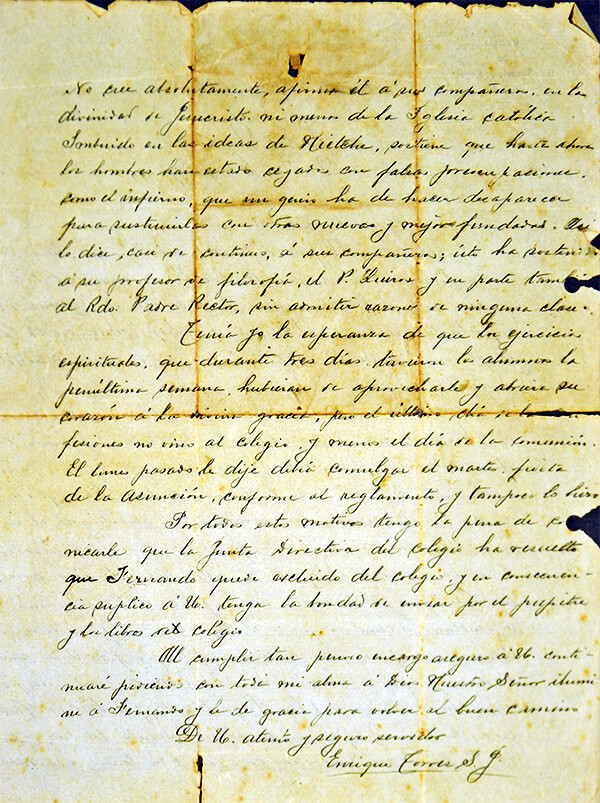 No cree absolutamente, afirma él á sus compañeros, en la
divinidad de Jesucristo, ni menos de la Iglesia católica
Imbuido en las ideas de Nietche, sostiene que hasta ahora
los hombres han estado cegados con falsas preocupaciones,
como el infierno, que un genio ha de hacer desaparecer
para sustituirlas con otras nuevas y mejor fundadas. Asi
lo dice, casi de continuo, á sus compañeros; esto ha sostenido
á su profesor de filosofía, el P. Quiros y en parte también
al Rdo. Padre Rector, sin admitir razones de ninguna clase.
Tenía yo la esperanza de que los ejercicios
espirituales, que durante tres días tuvieron los alumnos la
penúltima semana, hubieran de aprovecharle y abriera su
corazón á la divina gracia, pero el último día de las con-
fesiones no vino al colegio, y menos el día de la comunión.
El lunes pasado le dije debía comulgar el martes, fiesta
de la Asunción, conforme al reglamento, y tampoco lo hizo
Por todos estos motivos tengo la pena de
nicarle que la Junta Directiva del colegio ha resuelto
que Fernando quede excluido del colegio, y en consecuen-
cia suplico á U. tenga la bondad de enviar por el pupitre
y los libros del colegio
Al cumplir tan penoso encargo aseguro á U. conti-
nuaré pidiendo con toda mi alma á Dios Nuestro Señor ilumi
ne á Fernando y le de gracia para volver al buen camino
De U. atento y seguro servidor
Enrique Torres S. J.